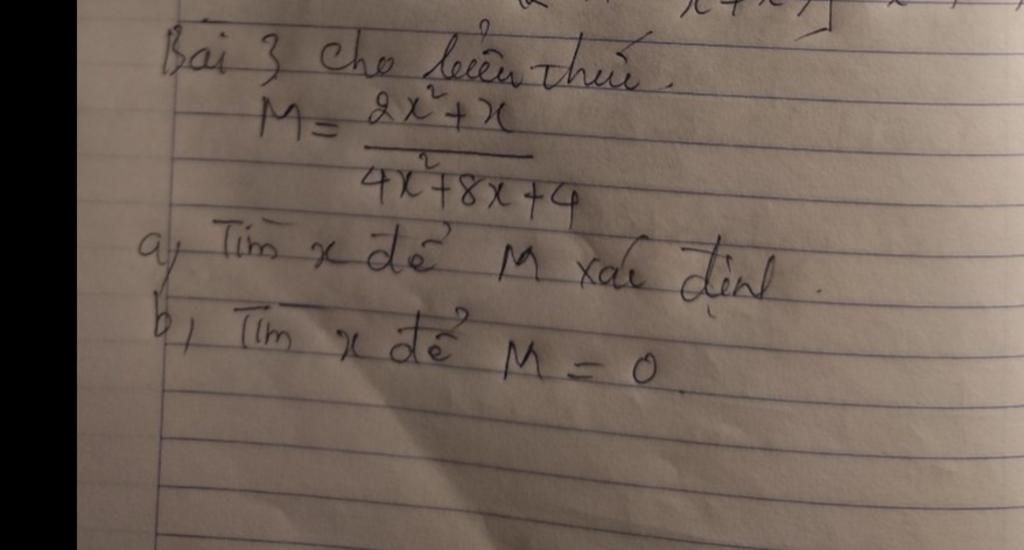 Bài 3 Cho biểu thức.
M = 2x²+x
4x²+8x+4
a, Tìm x để M xác định.
b, Tìm x để M = 0